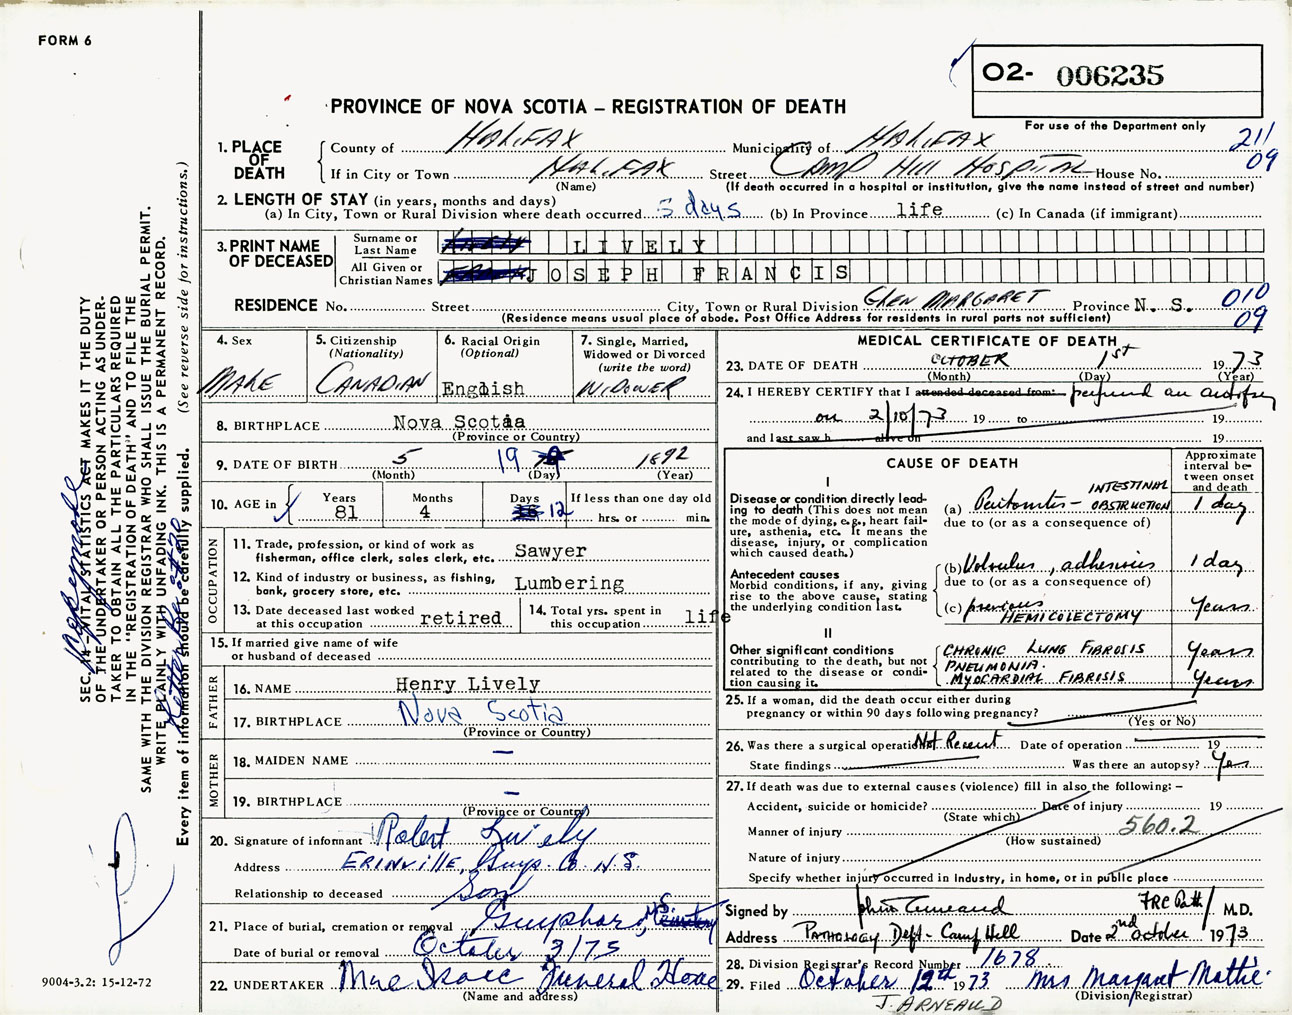 FORM 6
O2- 006235
PROVINCE OF NOVA SCOTIA – REGISTRATION OF DEATH
For use of the Department only
211
09
1. PLACE OF DEATH
County of HALIFAX Municipality of HALIFAX
If in City or Town HALIFAX Street CAMP HILL HOSPITAL House No.
(Name) (If death occurred in a hospital or institution, give the name instead of street and number)
2. LENGTH OF STAY (in years, months and days)
(a) In City, Town or Rural Division where death occurred 5 days (b) In Province life (c) In Canada (if immigrant)
3. PRINT NAME OF DECEASED
Surname or Last Name LIVELY
All Given or Christian Names JOSEPH FRANCIS
RESIDENCE No. Street City, Town or Rural Division GLEN MARGARET Province N. S.
010
09
(Residence means usual place of abode. Post Office Address for residents in rural parts not sufficient)
4. Sex
MALE
5. Citizenship
(Nationality)
CANADIAN
6. Racial Origin
(Optional)
English
7. Single, Married, Widowed or Divorced
(write the word)
WIDOWER
8. BIRTHPLACE Nova Scotia
(Province or Country)
9. DATE OF BIRTH 5 19 1892
(Month) (Day) (Year)
10. AGE in Years 81 Months 4 Days 12 If less than one day old
hrs. or min.
OCCUPATION
11. Trade, profession, or kind of work as fisherman, office clerk, sales clerk, etc. Sawyer
12. Kind of industry or business, as fishing, bank, grocery store, etc. Lumbering
13. Date deceased last worked at this occupation retired
14. Total yrs. spent in this occupation life
15. If married give name of wife or husband of deceased
FATHER
16. NAME Henry Lively
17. BIRTHPLACE Nova Scotia
(Province or Country)
MOTHER
18. MAIDEN NAME —
19. BIRTHPLACE —
(Province or Country)
20. Signature of informant Robert Lively
Address ERINVILLE, Guys. Co. N.S.
Relationship to deceased Son
21. Place of burial, cremation or removal Guysboro, N.S. Cemetery
Date of burial or removal October 3/73
22. UNDERTAKER Mac Isaac Funeral Home
(Name and address)
MEDICAL CERTIFICATE OF DEATH
23. DATE OF DEATH OCTOBER 1st 1973
(Month) (Day) (Year)
24. I HEREBY CERTIFY that I attended deceased from: perform an autopsy
on 2/10/73 19 to 19
and last saw h alive on 19
CAUSE OF DEATH
Approximate interval between onset and death
I
Disease or condition directly leading to death (This does not mean the mode of dying, e.g., heart failure, asthenia, etc. It means the disease, injury, or complication which caused death.)
(a) Peritonitis – INTESTINAL OBSTRUCTION 1 day
due to (or as a consequence of)
Antecedent causes
Morbid conditions, if any, giving rise to the above cause, stating the underlying condition last.
(b) Volvulus, adhesions 1 day
due to (or as a consequence of)
(c) previous HEMICOLECTOMY Years
II
Other significant conditions contributing to the death, but not related to the disease or condition causing it.
CHRONIC LUNG FIBROSIS Years
PNEUMONIA.
MYOCARDIAL FIBROSIS Years
25. If a woman, did the death occur either during pregnancy or within 90 days following pregnancy?
(Yes or No)
26. Was there a surgical operation Not Recent Date of operation 19
State findings Was there an autopsy? Yes
27. If death was due to external causes (violence) fill in also the following: –
Accident, suicide or homicide? Date of injury 19
(State which)
Manner of injury 560.2
(How sustained)
Nature of injury
Specify whether injury occurred in Industry, in home, or in public place
Signed by FRC Path / M.D.
Address PATHOLOGY Dept - Camp Hill Date 2nd October 1973
28. Division Registrar's Record Number 1678
29. Filed October 12th 1973 Mrs Margaret Mattie
(Division Registrar)
J. ARNEAUD
SEC. 14 – VITAL STATISTICS ACT MAKES IT THE DUTY
OF THE UNDERTAKER OR PERSON ACTING AS UNDERTAKER TO OBTAIN ALL THE PARTICULARS REQUIRED
IN THE "REGISTRATION OF DEATH" AND TO FILE THE
SAME WITH THE DIVISION REGISTRAR WHO SHALL ISSUE THE BURIAL PERMIT.
WRITE PLAINLY WITH UNFADING INK. THIS IS A PERMANENT RECORD.
Every item of information should be carefully supplied. (See reverse side for instructions.)
9004-3.2: 15-12-72